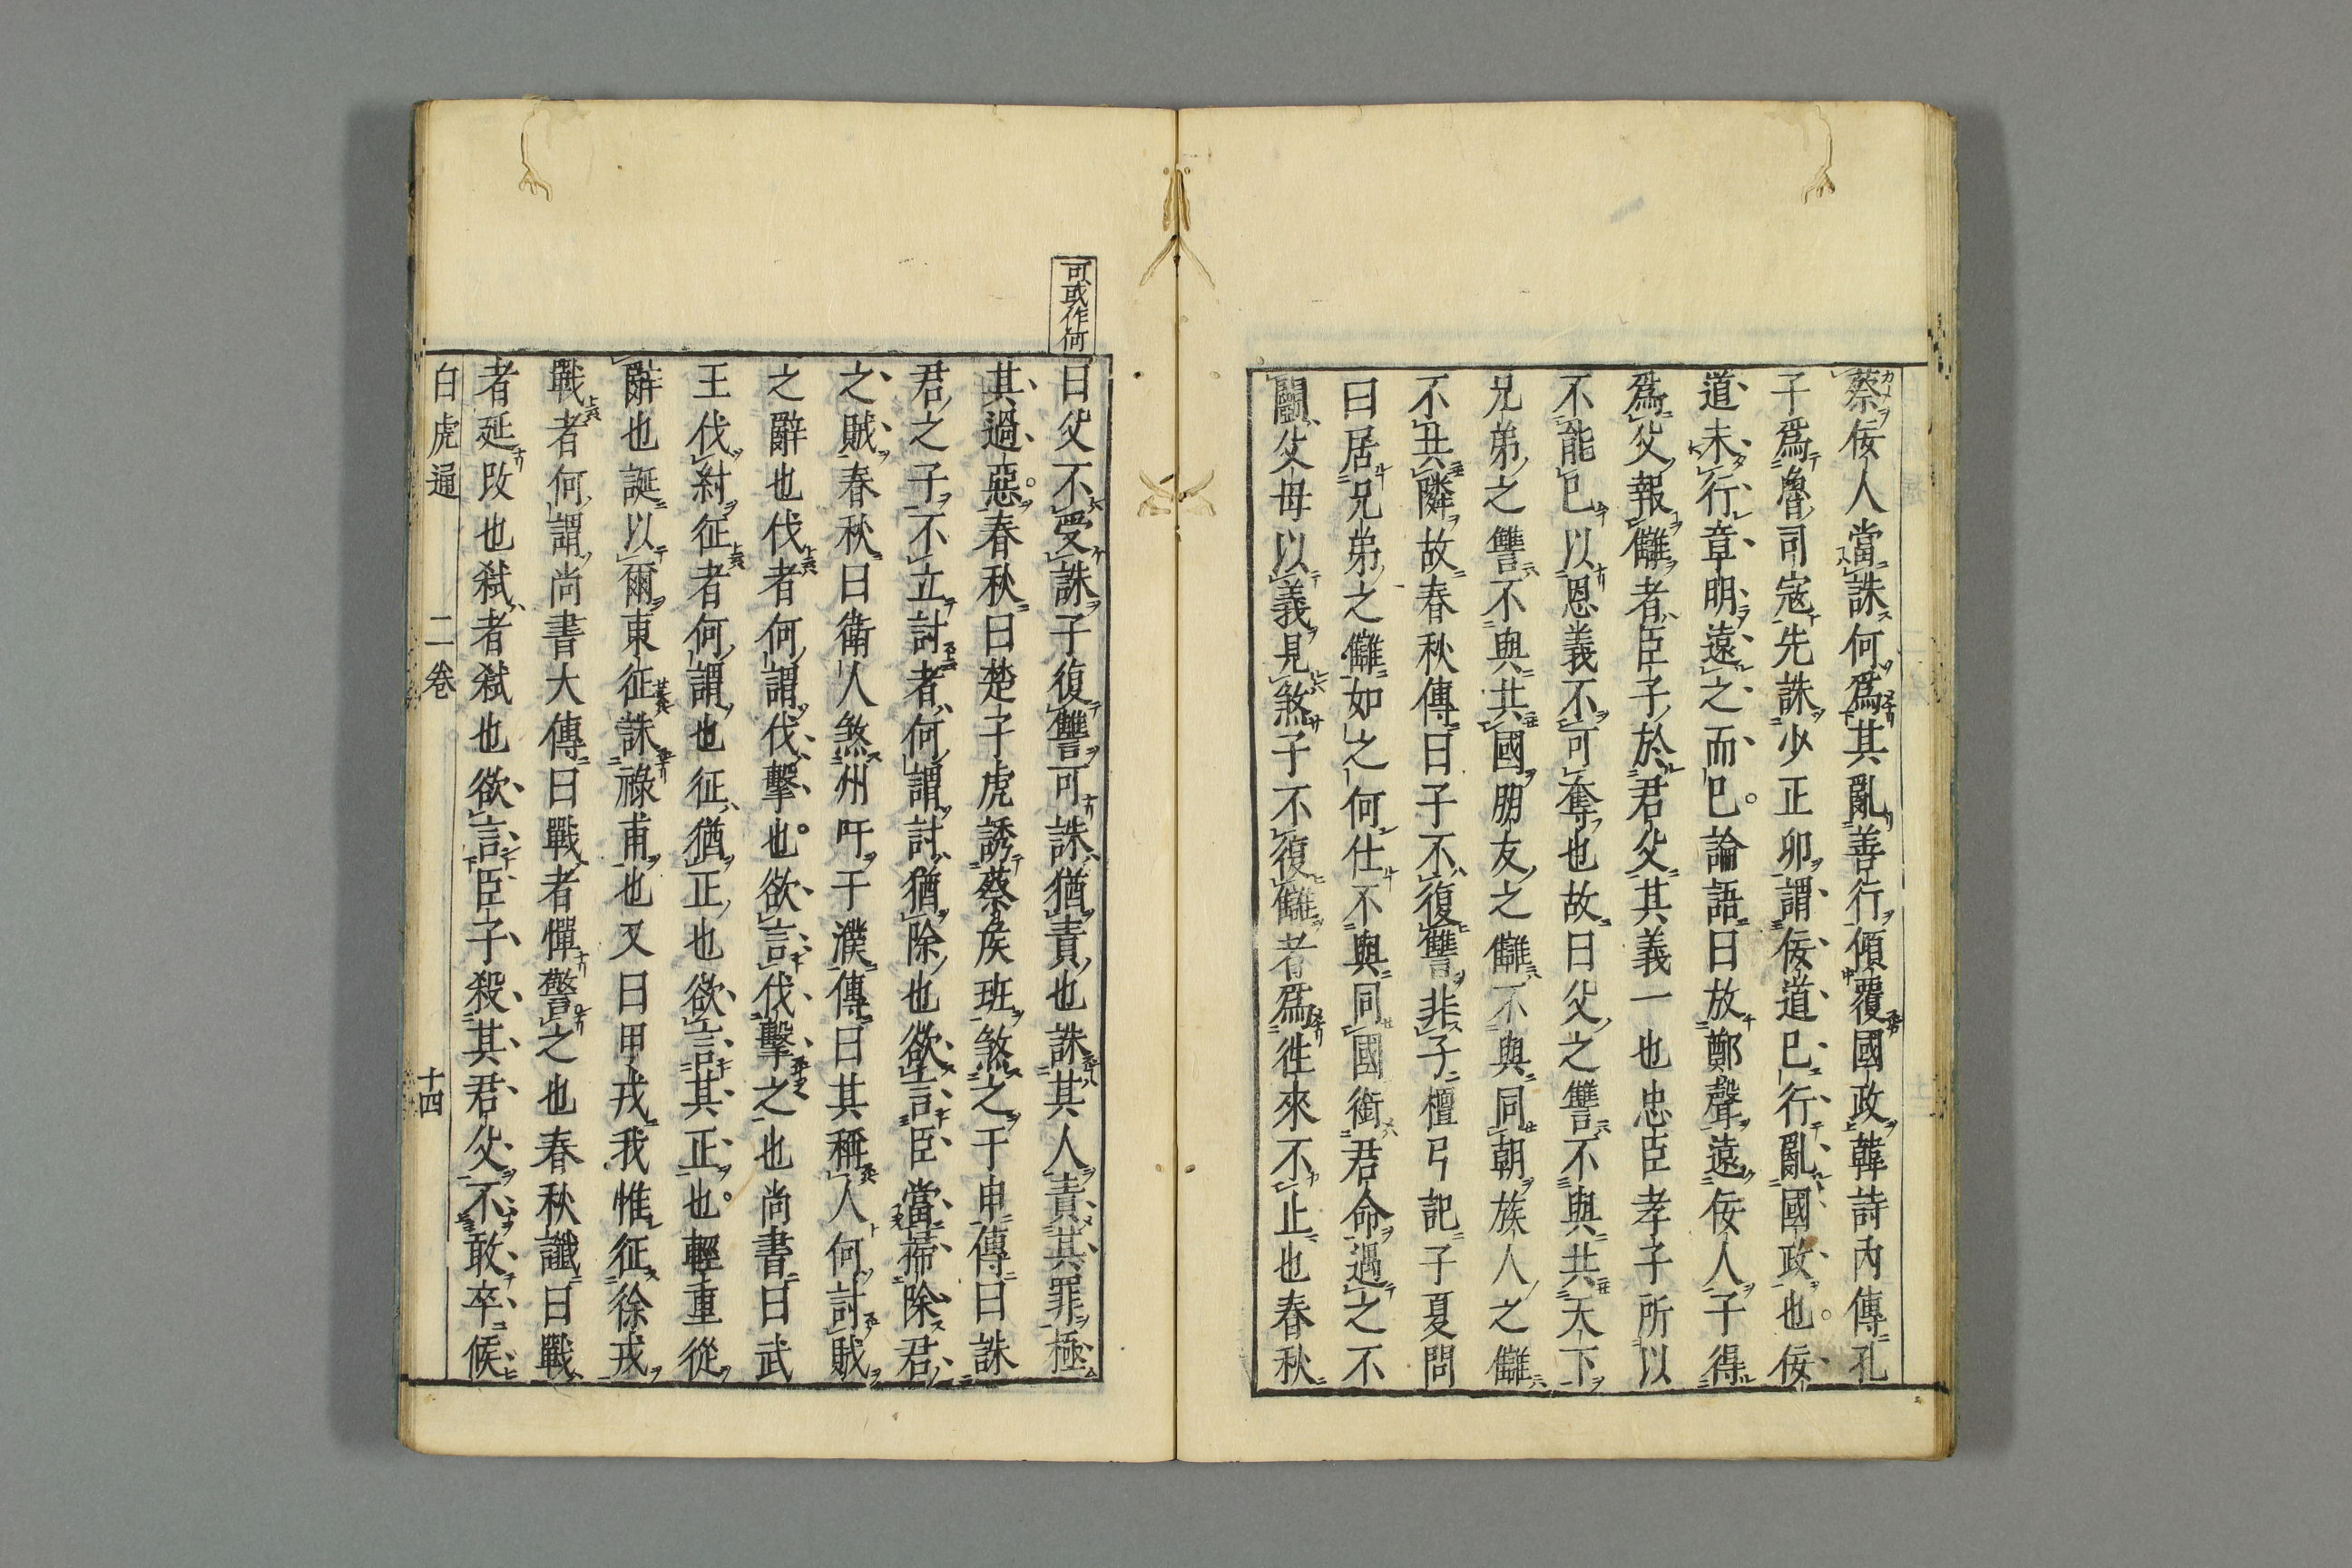 蔡佞人當誅何爲其亂善行傾覆國政韓詩内傳孔
子爲魯司寇先誅少正卯謂佞道已行亂國政也佞
道未行章明遠之而已論語曰放鄭聲遠佞人子得
爲父報讎者臣子於君父其義一也忠臣孝子所以
不能已以恩義不可奪也故曰父之讐不與共天下
兄弟之讐不與共國朋友之讎不與同朝族人之讎
不共隣故春秋傳曰子不復讐非子檀弓記子夏問
曰居兄弟之讎如之何仕不與同國銜君命遇之不
鬭父母以義見煞子不復讎者爲徃來不止也春秋
可或作何
曰父不受誅子復讐可誅猶責也誅其人責其罪極
其過惡春秋曰楚子虎誘蔡侯班煞之于申傳曰誅
君之子不立討者何謂討猶除也欲言臣當掃除君
之賊春秋曰衛人煞州吁于濮傳曰其稱人何討賊
之辭也伐者何謂伐擊也欲言伐擊之也尚書曰武
王伐紂征者何謂也征猶正也欲言其正也輕重從
辭也誕以爾東征誅祿甫也又曰甲戎我惟征徐戎
戰者何謂尚書大傳曰戰者憚警之也春秋讖曰戰
者延改也弑者弑也欲言臣子殺其君父不敢卒候
白虎通　二卷　十四